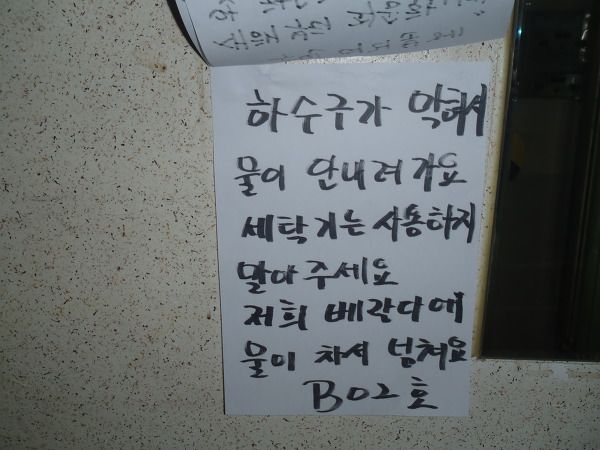 하수구가 막혀서
물이 안내려가요
세탁기는 사용하지
말아주세요
저희 베란다에
물이 차서 넘쳐요
B02호